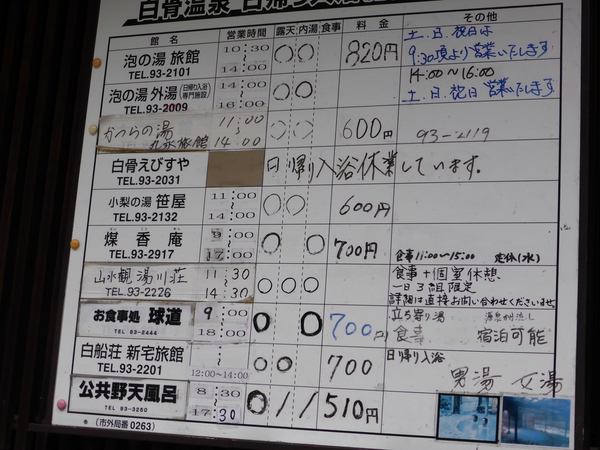 白骨温泉 日帰り入浴
館 名 営業時間 露天 内湯 食事 料 金 その他
泡の湯 旅館 TEL.93-2101 10:30〜14:00 ○ ○ 820円 土、日、祝日は 9:30頃より営業いたします
泡の湯 外湯 (日帰り入浴専門施設) TEL.93-2009 14:00〜16:00 ○ ○ 14:00〜16:00 土、日、祝日 営業いたします
かつらの湯 丸永旅館 11:00〜14:00 ○ ○ 600円 93-2119
白骨えびすや TEL.93-2031 日帰り入浴休業しています。
小梨の湯 笹屋 TEL.93-2132 11:00〜14:00 ○ ○ 600円
煤香庵 TEL.93-2917 9:00〜17:00 ○ ○ 700円 食事11:00〜15:00 定休(水)
山水観 湯川荘 TEL.93-2226 11:30〜14:30 ○ ○ ○ 食事+個室休憩 一日3組限定 詳細は直接お問い合わせくださいませ
お食事処 球道 TEL 93-2444 9:00〜18:00 ○ ○ 700円 立ち寄り湯 食事 宿泊可能
白船荘 新宅旅館 TEL.93-2201 12:00〜14:00 ○ ○ 700 日帰り入浴
男湯 女湯
公共野天風呂 TEL 93-3260 8:30 17:30 ○ / / 510円
(市外局番 0263)